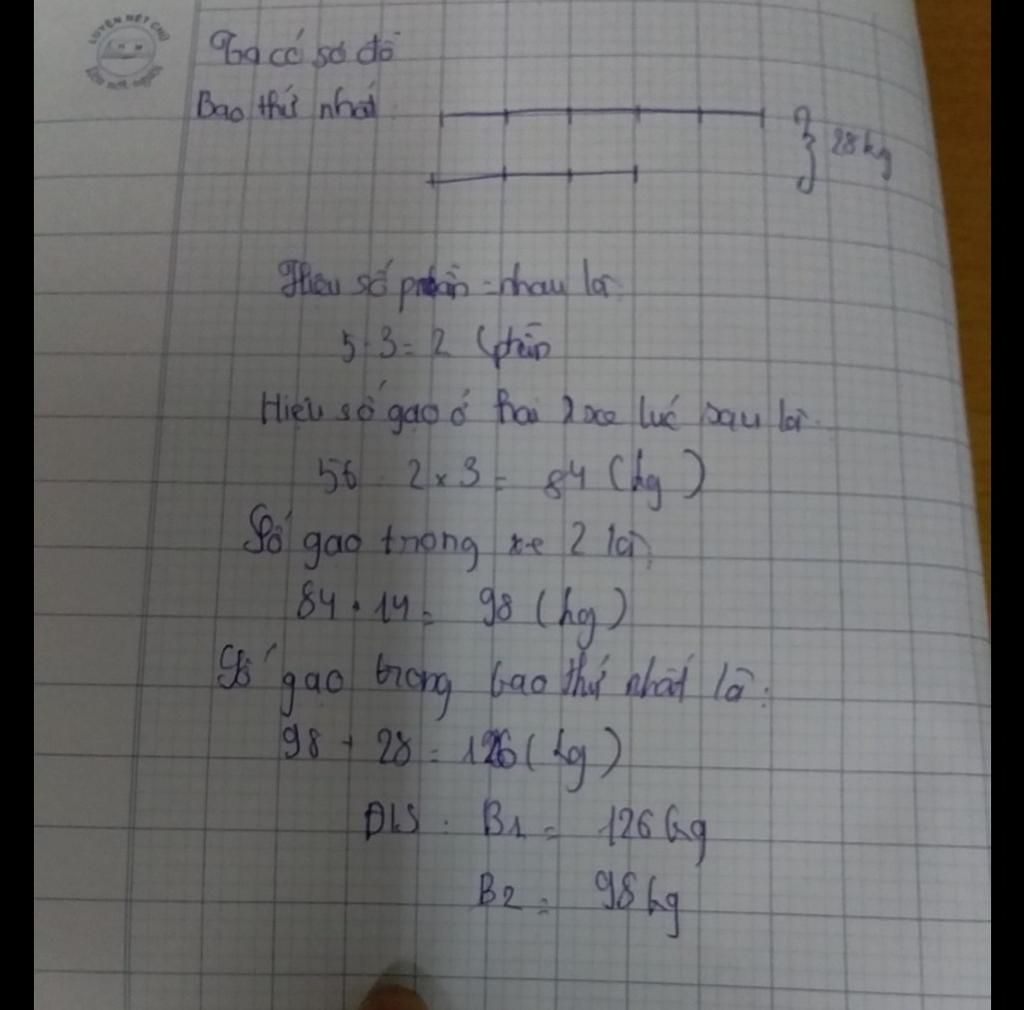 LUYỆN NÉT CHỮ
RÈN NẾT NGƯỜI
Ta có sơ đồ
Bao thứ nhất
28 kg
Hiệu số phần = nhau là
5 - 3 = 2 (phần
Hiệu số gạo ở hai 2 xe lúc sau là
56 : 2 x 3 = 84 (kg)
Số gạo trong xe 2 là
84 + 14 = 98 (kg)
Số gạo trong bao thứ nhất là:
98 + 28 = 126 (kg)
Đ/S : B1 = 126 kg
B2 = 98 kg